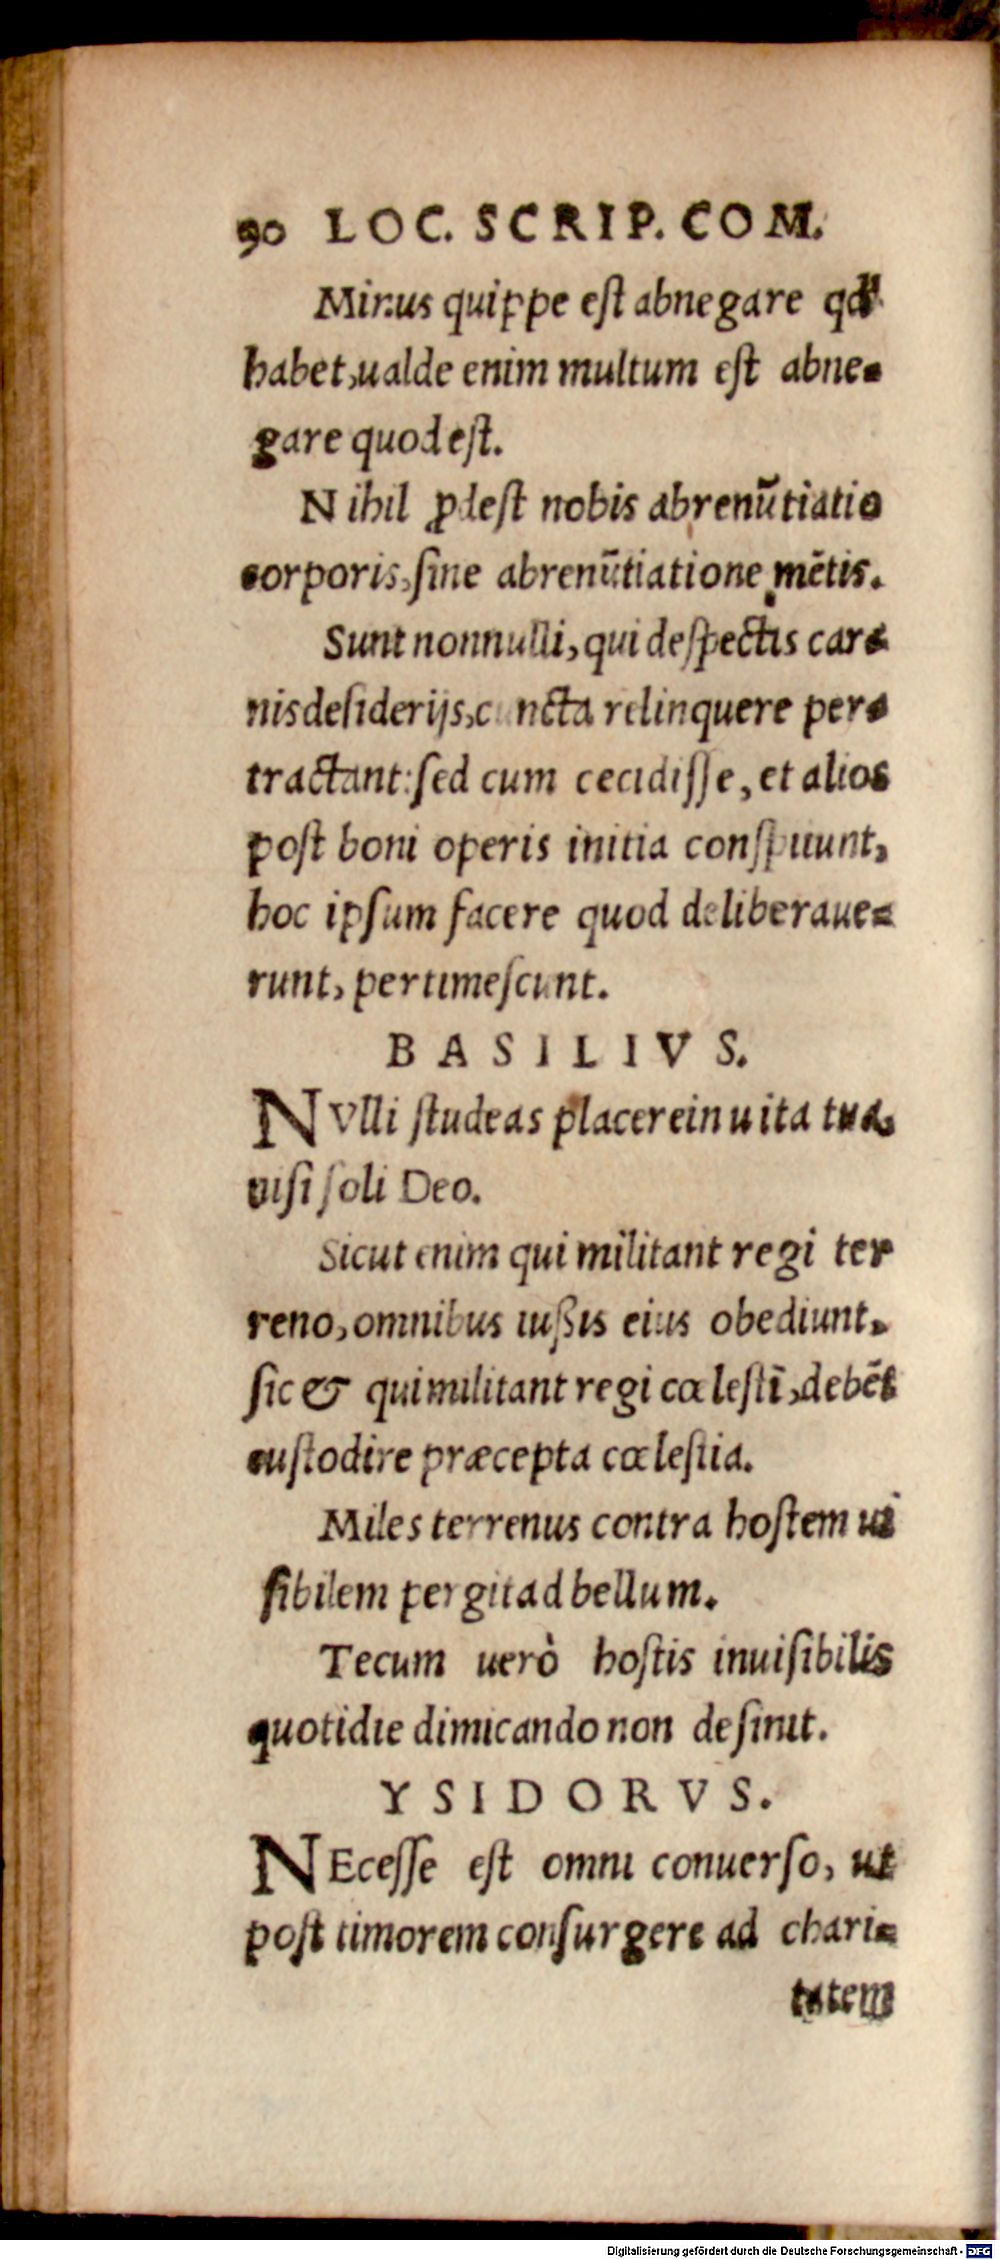 90 LOC. SCRIP. COM.
Minus quippe est abnegare qd
habet, ualde enim multum est abne-
gare quod est.
Nihil ꝓdest nobis abrenūtiatio
corporis, sine abrenūtiatione mētis.
Sunt nonnulli, qui despectis car-
nis desiderijs, cuncta relinquere per-
tractant: sed cum cecidisse, et alios
post boni operis initia conspiiunt,
hoc ipsum facere quod deliberaue-
runt, pertimescunt.
BASILIVS.
NVlli studeas placere in uita tua,
nisi soli Deo.
Sicut enim qui militant regi ter
reno, omnibus iussis eius obediunt.
sic & qui militant regi cœlesti, debēt
custodire præcepta cœlestia.
Miles terrenus contra hostem ui
sibilem pergit ad bellum.
Tecum uerò hostis inuisibilis
quotidie dimicando non desinit.
YSIDORVS.
NEcesse est omni conuerso, ut
post timorem consurgere ad chari-
tatem
Digitalisierung gefördert durch die Deutsche Forschungsgemeinschaft - DFG